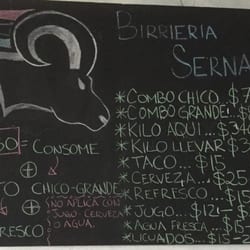 BIRRIERIA
SERNA
*COMBO CHICO..$7
*COMBO GRANDE!..$
*KILO AQUI...$34
*KILO LLEVAR $3
*TACO...$15
*CERVEZA...$25
*REFRESCO...$15
*JUGO...$12
*AGUA FRESCA..$15
*LICUADOS..$15
= CONSOME
+ +
CHICO-GRANDE
NO APLICA CON
JUGO, CERVEZA
O AGUA.